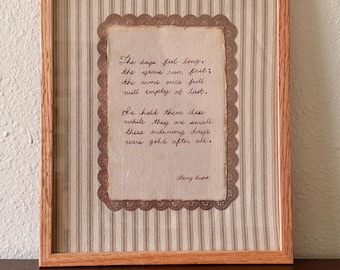 The days feel long,
the years run fast;
the arms once full
will empty at last.
So hold them close
while they are small
these ordinary days
were gold after all.